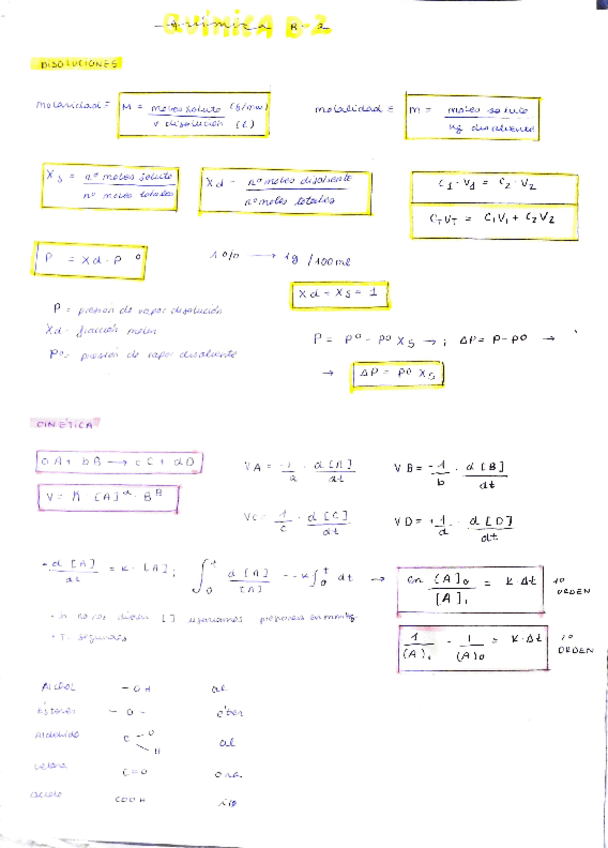 QUÍMICA B-2
DISOLUCIONES
molaridad = M = moles soluto (g/mw) / v disolución (L)
molalidad = m = moles soluto / kg disolvente
Xs = nº moles soluto / nº moles totales
Xd = nº moles disolvente / nº moles totales
C1 · V1 = C2 · V2
CTVT = C1V1 + C2V2
P = Xd · Pº
1% → 1g / 100ml
Xd + Xs = 1
P = presión de vapor disolución
Xd = fracción molar
Pº = presión de vapor disolvente
P = Pº - Pº Xs → ; ΔP = P - Pº →
→ ΔP = Pº Xs
CINÉTICA
aA + bB → cC + dD
V = K [A]ᵅ · Bᴮ
VA = -1/a · d[A]/dt
VB = -1/b · d[B]/dt
VC = 1/c · d[C]/dt
VD = +1/d · d[D]/dt
-d[A]/dt = K · [A] ; ∫₀ᵗ d[A]/[A] = -K ∫₀ᵗ dt → Ln [A]₀/[A]₁ = K · Δt
ORDEN
1/[A]₁ - 1/[A]₀ = K · Δt
ORDEN
[ ] usaremos presiones en mmHg
T: segundos
Alcohol -OH
Ésteres -O-
Aldehído C O H al
C=O ona
COOH